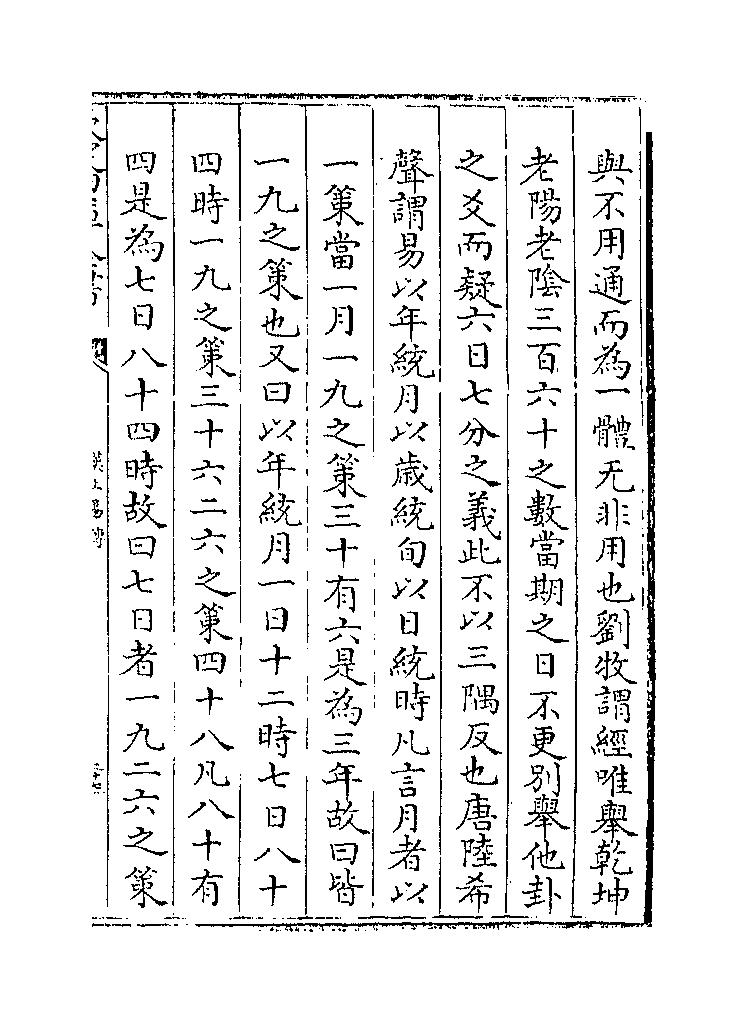 與不用通而為一體无非用也劉牧謂經唯舉乾坤
老陽老陰三百六十之數當期之日不更別舉他卦
之爻而疑六日七分之義此不以三隅反也唐陸希
聲謂易以年統月以歳統旬以日統時凡言月者以
一策當一月一九之策三十有六是為三年故曰皆
一九之策也又曰以年統月一日十二時七日八十
四時一九之策三十六二六之策四十八凡八十有
四是為七日八十四時故曰七日者一九二六之策
漢上易傳